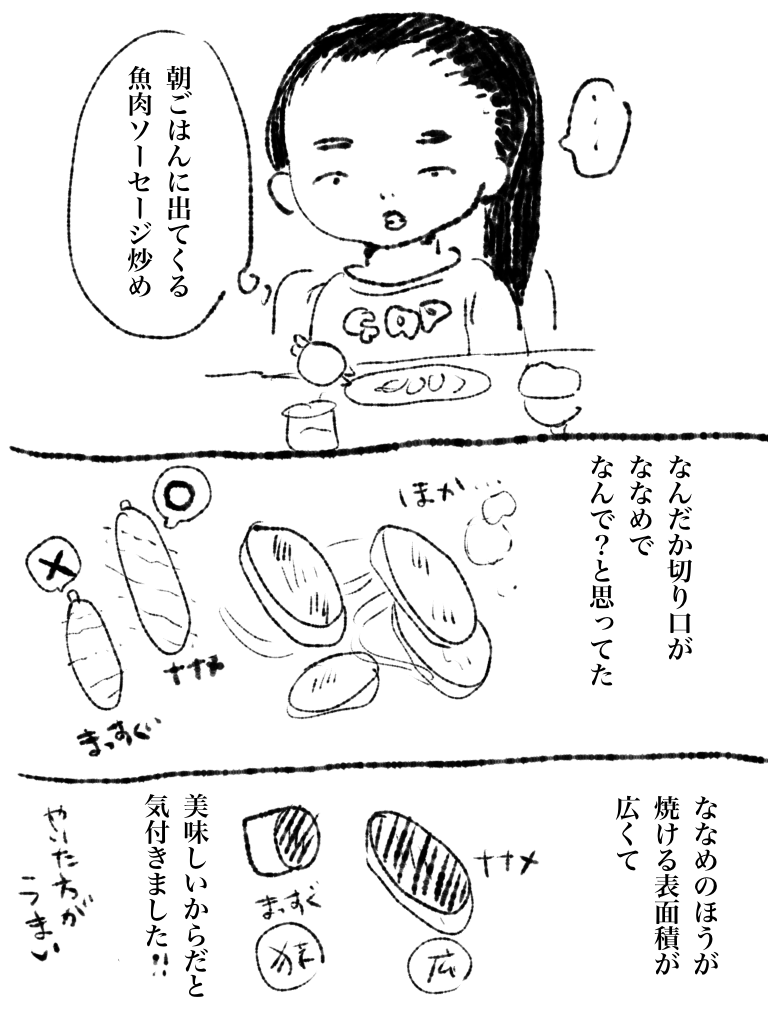 ・・・
朝ごはんに出てくる
魚肉ソーセージ炒め
GAP
なんだか切り口が
ななめで
なんで?と思ってた
ほか...
ナナメ
まっすぐ
ななめのほうが
焼ける表面積が
広くて
ナナメ
広
まっすぐ
狭
美味しいからだと
気付きました!!
やいた方が
うまい